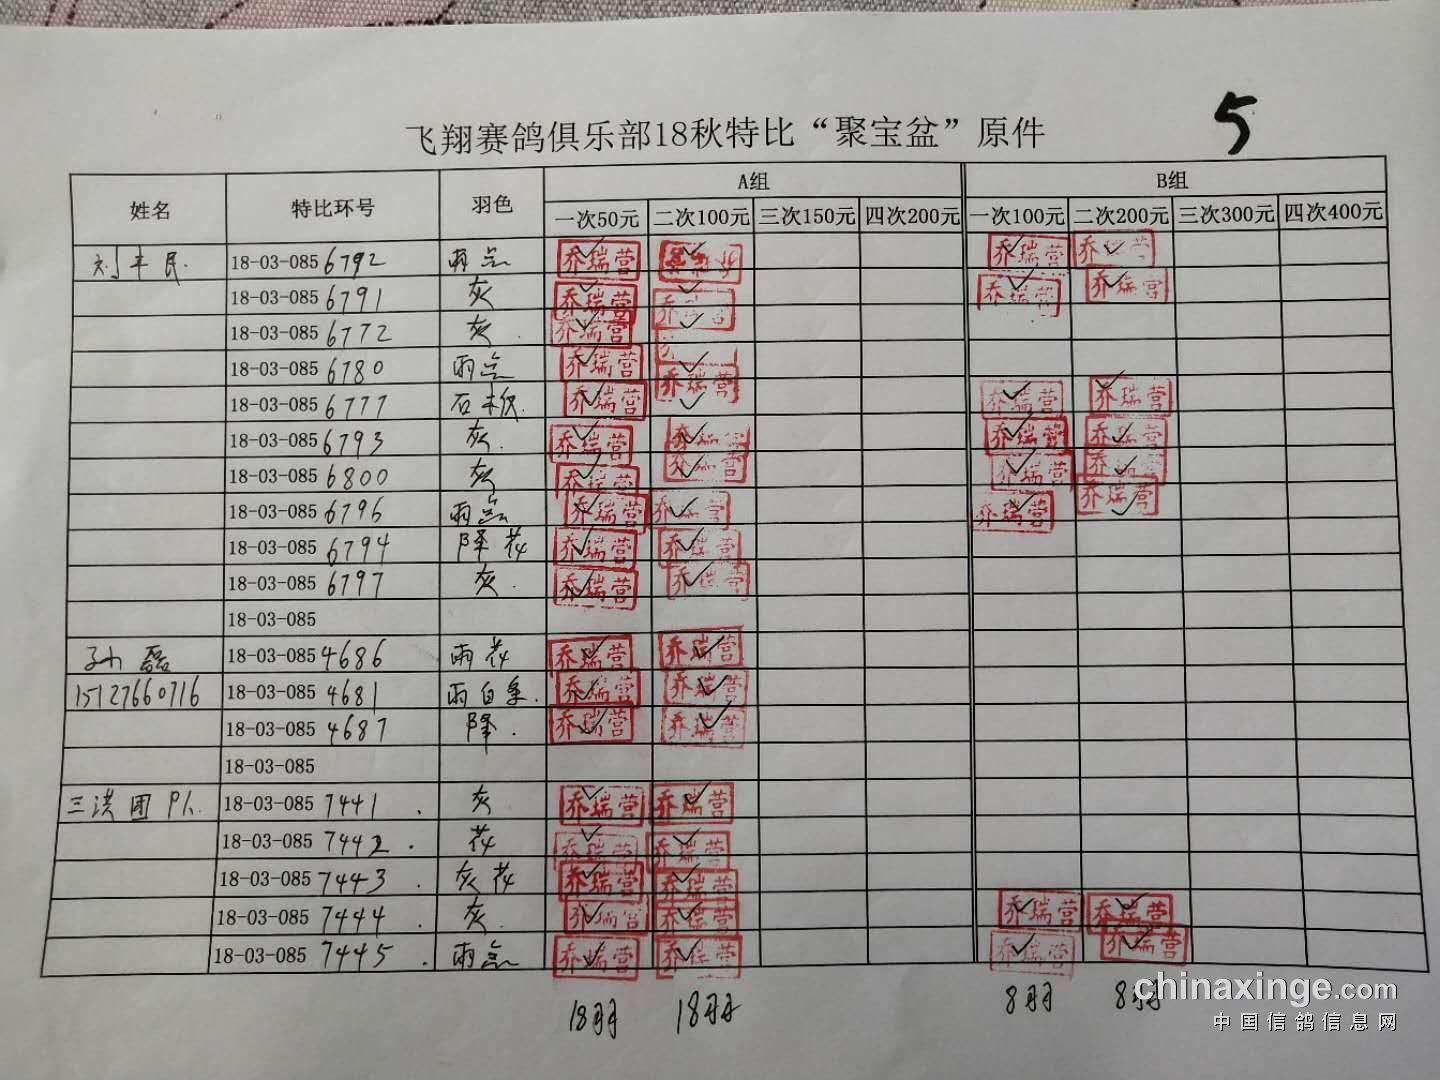 5
飞翔赛鸽俱乐部18秋特比“聚宝盆”原件
姓名 特比环号 羽色 A组 B组
一次50元 二次100元 三次150元 四次200元 一次100元 二次200元 三次300元 四次400元
刘丰民 18-03-085 6792 雨点 乔瑞营 乔瑞营 乔瑞营
18-03-085 6791 灰 乔瑞营 乔瑞营 乔瑞营 乔瑞营
18-03-085 6772 灰 乔瑞营
18-03-085 6780 雨点 乔瑞营 乔瑞营
18-03-085 6777 石板 乔瑞营 乔瑞营 乔瑞营
18-03-085 6793 灰 乔瑞营 乔瑞营 乔瑞营 乔瑞营
18-03-085 6800 灰 乔瑞营 乔瑞营 乔瑞营 乔瑞营
18-03-085 6796 雨点 乔瑞营 乔瑞营 乔瑞营 乔瑞营
18-03-085 6794 降花 乔瑞营 乔瑞营
18-03-085 6797 灰 乔瑞营 乔瑞营
18-03-085
孙磊 18-03-085 4686 雨花 乔瑞营 乔瑞营
15127660716 18-03-085 4681 雨白条 乔瑞营 乔瑞营
18-03-085 4687 降 乔瑞营 乔瑞营
18-03-085
三洪团队 18-03-085 7441 灰 乔瑞营 乔瑞营
18-03-085 7442 花 乔瑞营 乔瑞营
18-03-085 7443 灰花 乔瑞营 乔瑞营
18-03-085 7444 灰 乔瑞营 乔瑞营 乔瑞营 乔瑞营
18-03-085 7445 雨点 乔瑞营 乔瑞营 乔瑞营 乔瑞营
18羽 18羽 8羽 8羽
chinaxinge.com
中国信鸽信息网